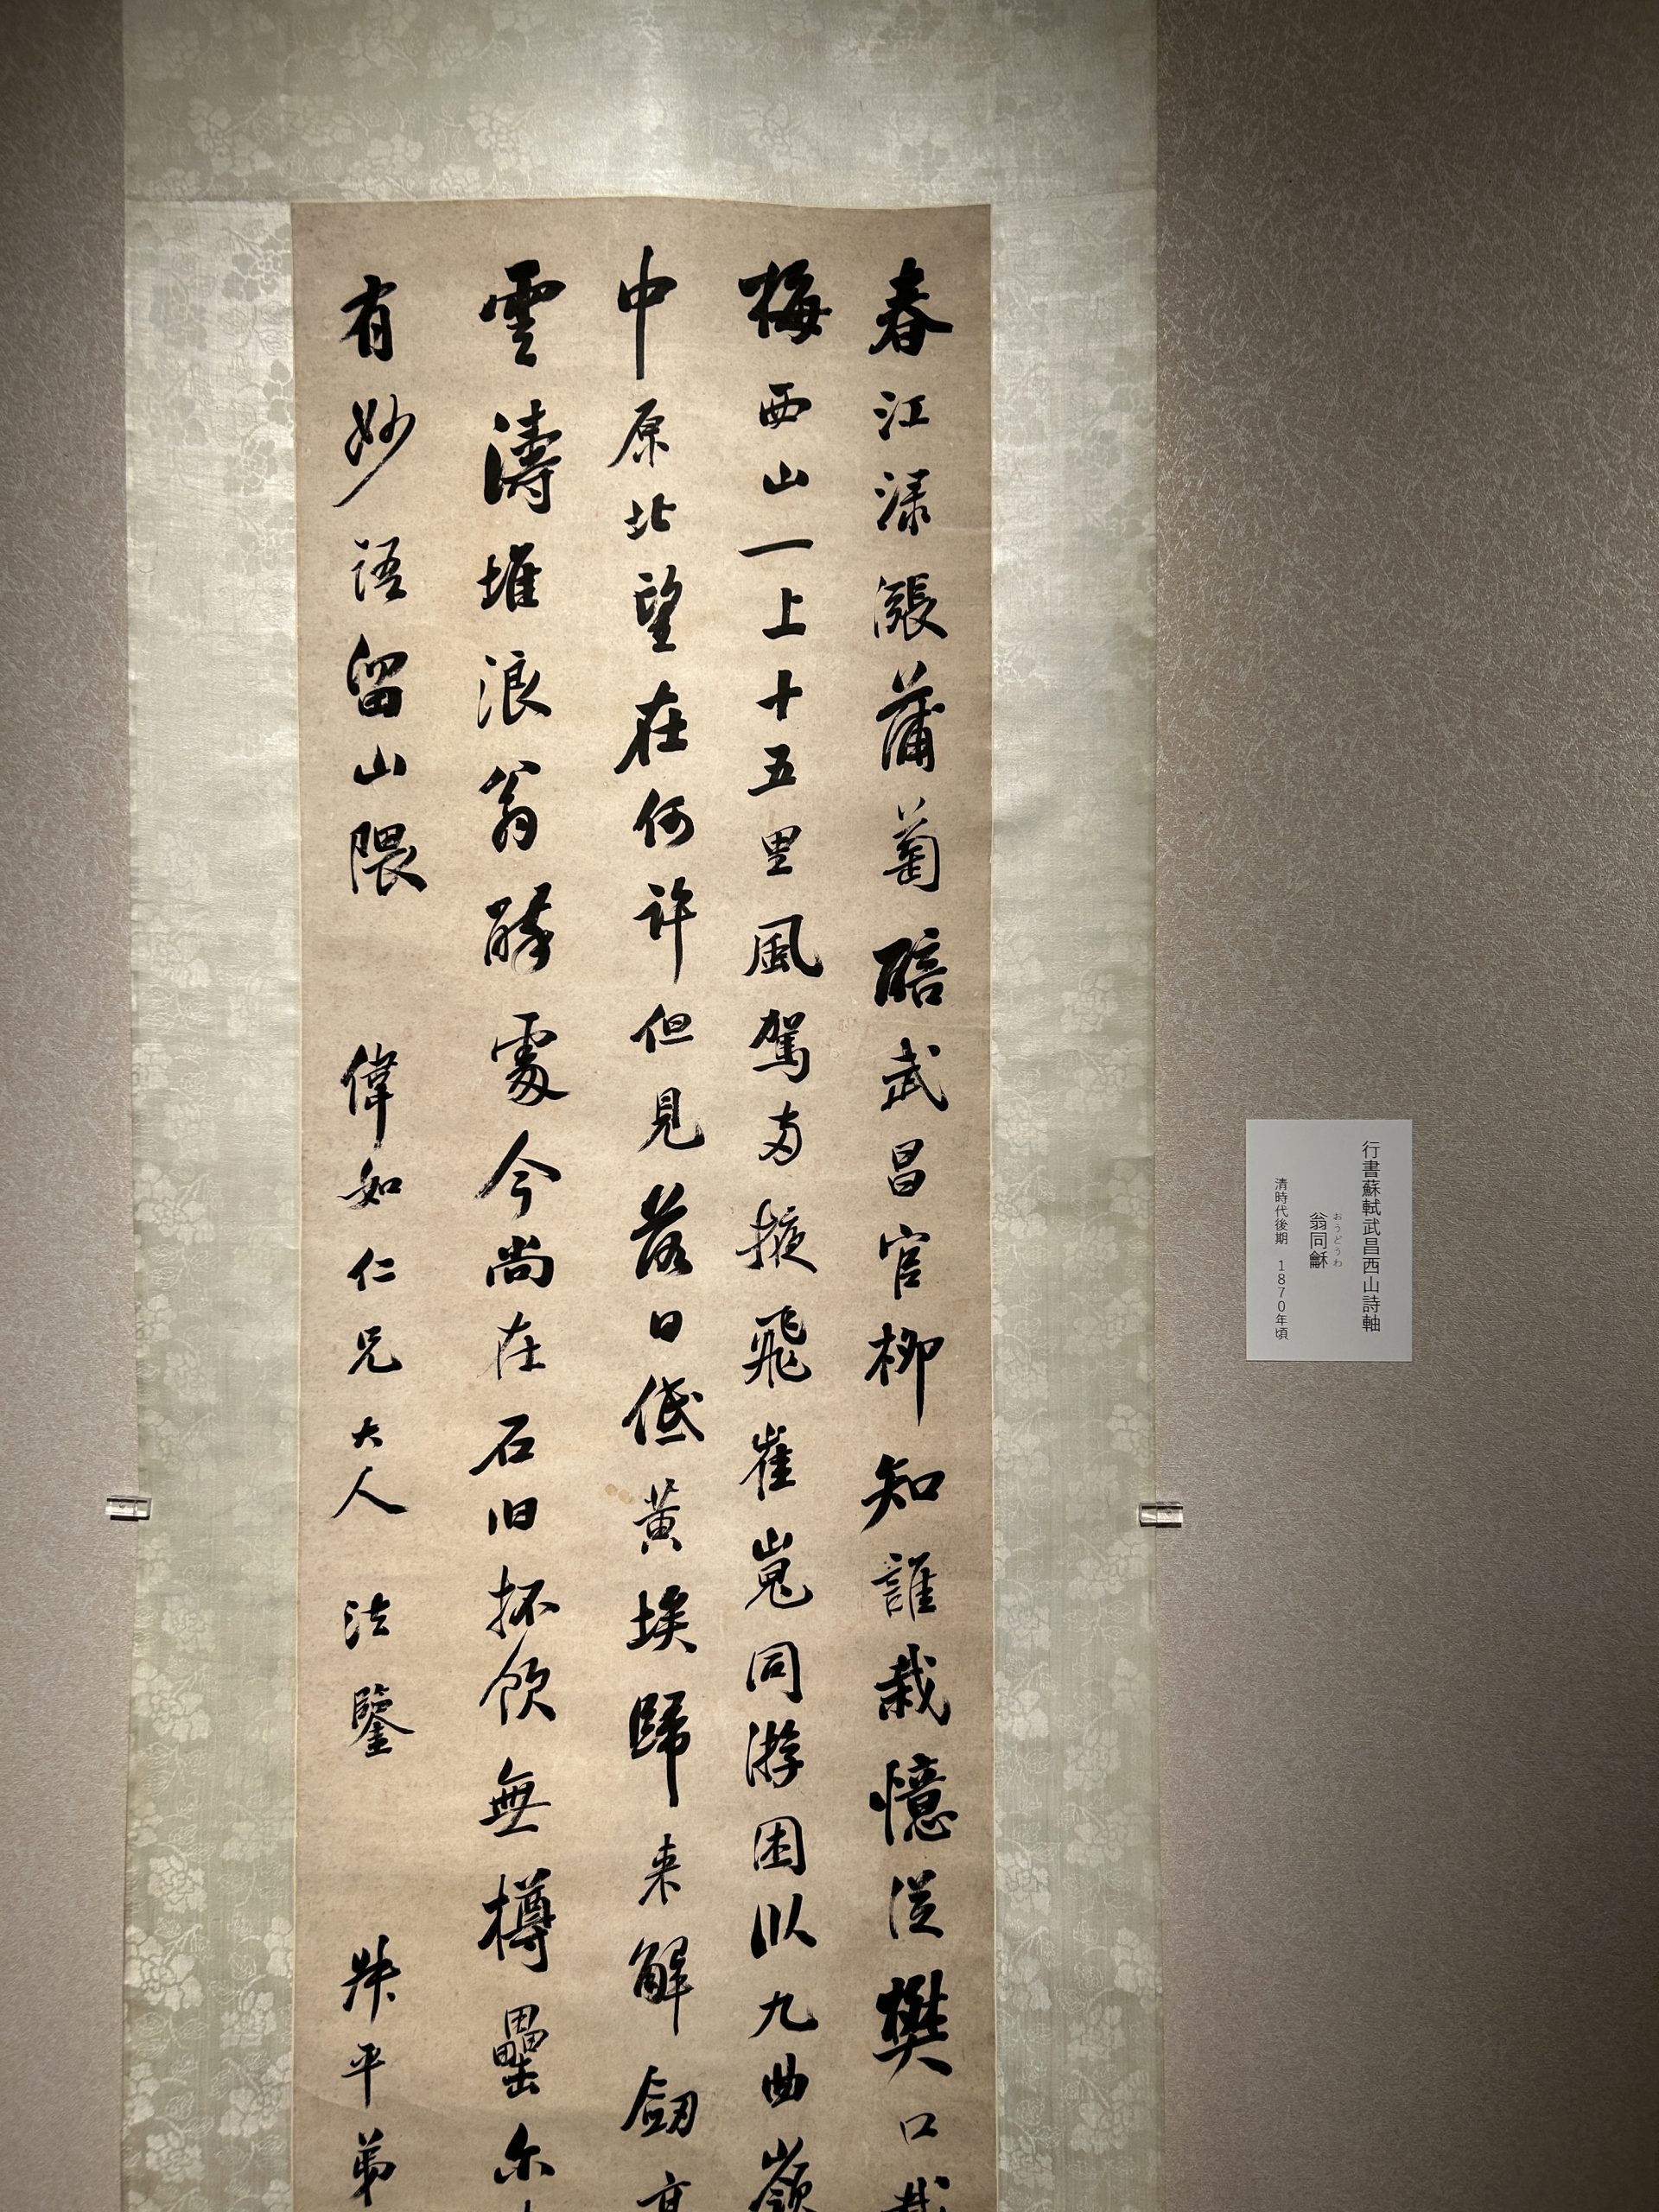 春江渌漲蒲萄醅武昌官柳知誰栽憶從樊口
梅西山一上十五里風駕兩掖飛崔嵬同游困臥九曲嶺
中原北望在何許但見落日低黃埃歸来解劔亭
雲濤堆浪翁醉處今尚在石臼抔飲無樽罍尒
有妙語留山隈 偉如仁兄大人 法鑒 叔平弟
行書蘇軾武昌西山詩軸
おうどうわ
翁同龢
清時代後期 1870年頃